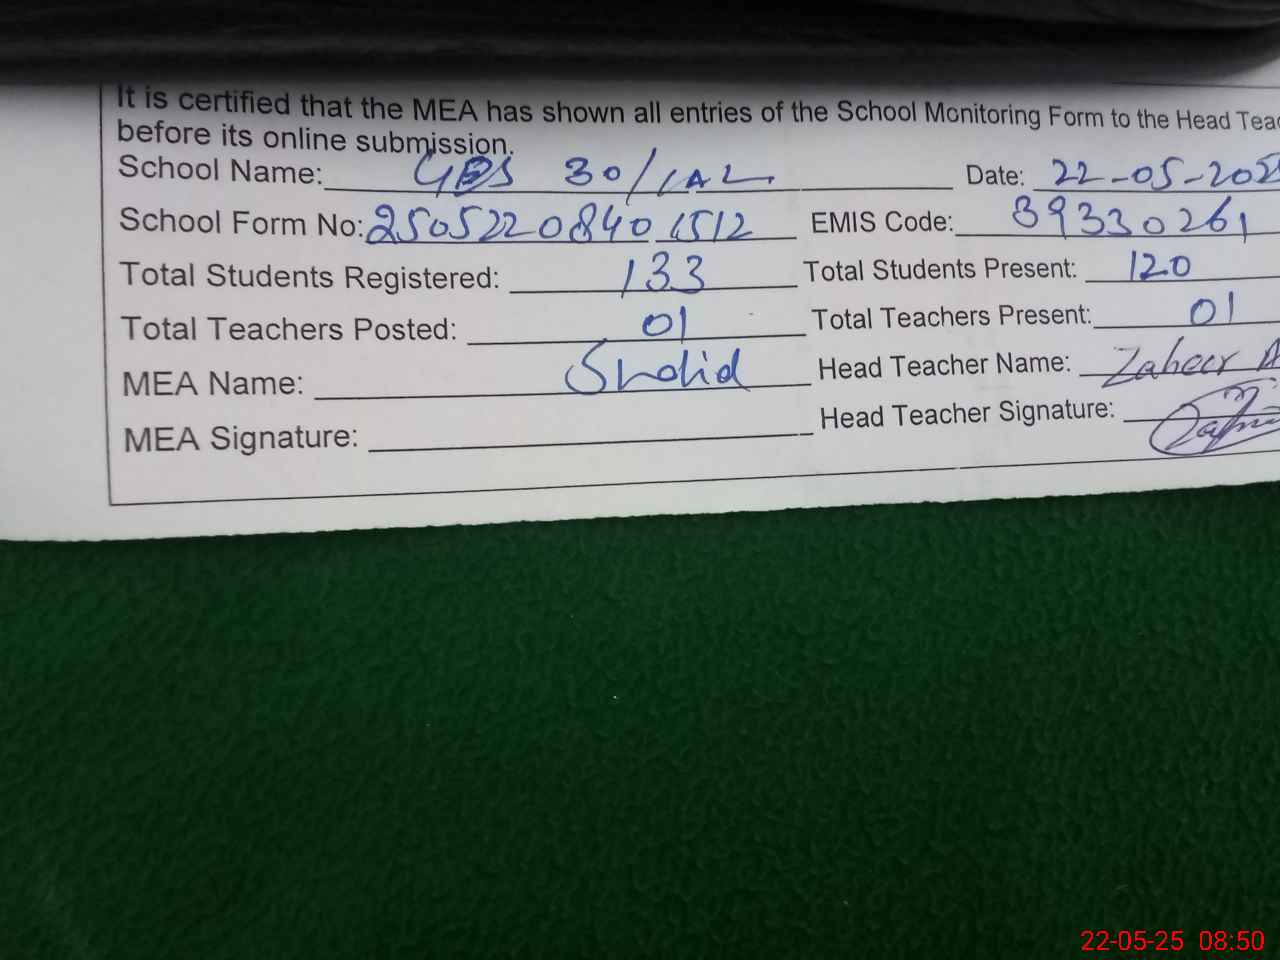 It is certified that the MEA has shown all entries of the School Monitoring Form to the Head Teac
before its online submission.
School Name: GES 30/1AL Date: 22-05-2025
School Form No: 2505220840 1512 EMIS Code: 39330261
Total Students Registered: 133 Total Students Present: 120
Total Teachers Posted: 01 Total Teachers Present: 01
MEA Name: Shahid Head Teacher Name: Zaheer A
MEA Signature: Head Teacher Signature:
22-05-25 08:50